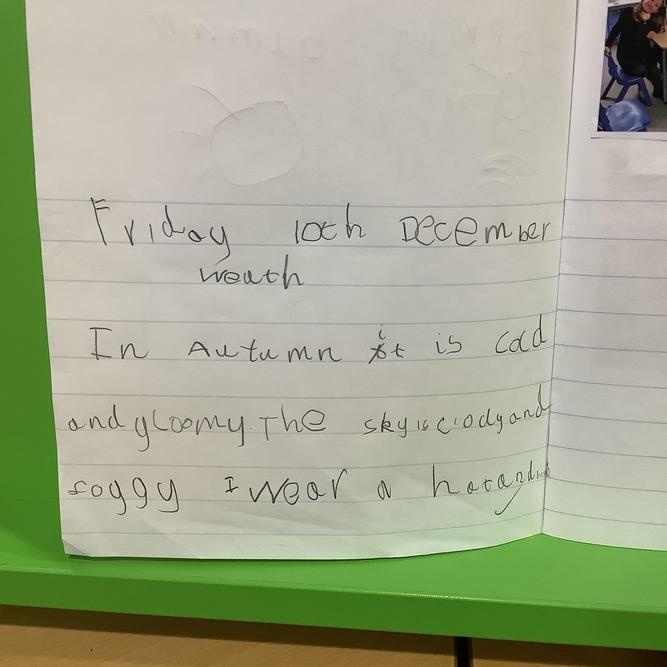 Friday 10th December
weath
In Autumn it is cod
and gloomy. The sky is clody and
foggy I wear a hat and